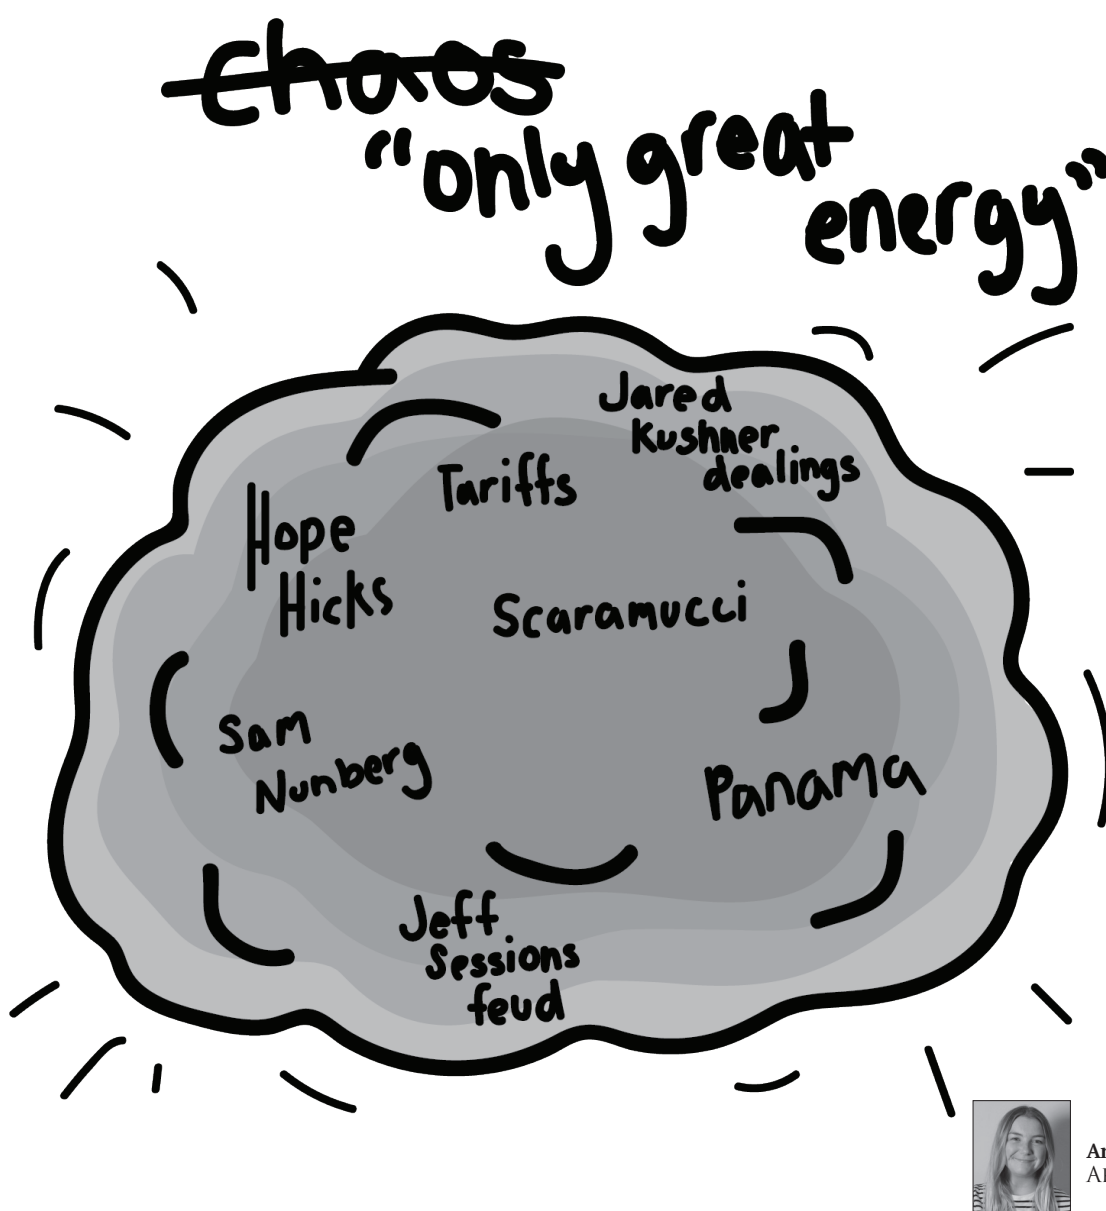 chaos
"only great
energy"
Jared
Kushner
dealings
Tariffs
Hope
Hicks
Scaramucci
Sam
Nunberg
Panama
Jeff
Sessions
feud